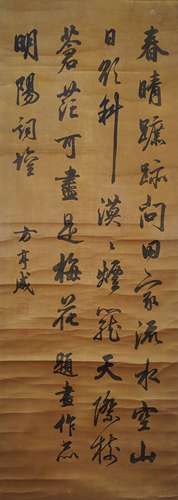 春晴蹠跡問田家流水空山
日影斜漠〻煙籠天際樹
蒼茫可盡是梅花 題畫作為
明陽詞壇
方亨咸